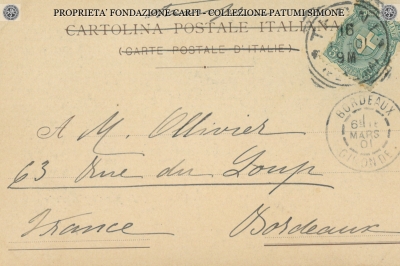 PROPRIETA' FONDAZIONE CARIT - COLLEZIONE PATUMI SIMONE
CARTOLINA POSTALE ITALIANA
(CARTE POSTALE D'ITALIE)
16
9M
BORDEAUX
6
MARS
01
GIRONDE
A M. Ollivier
63 Rue du Loup
France Bordeaux